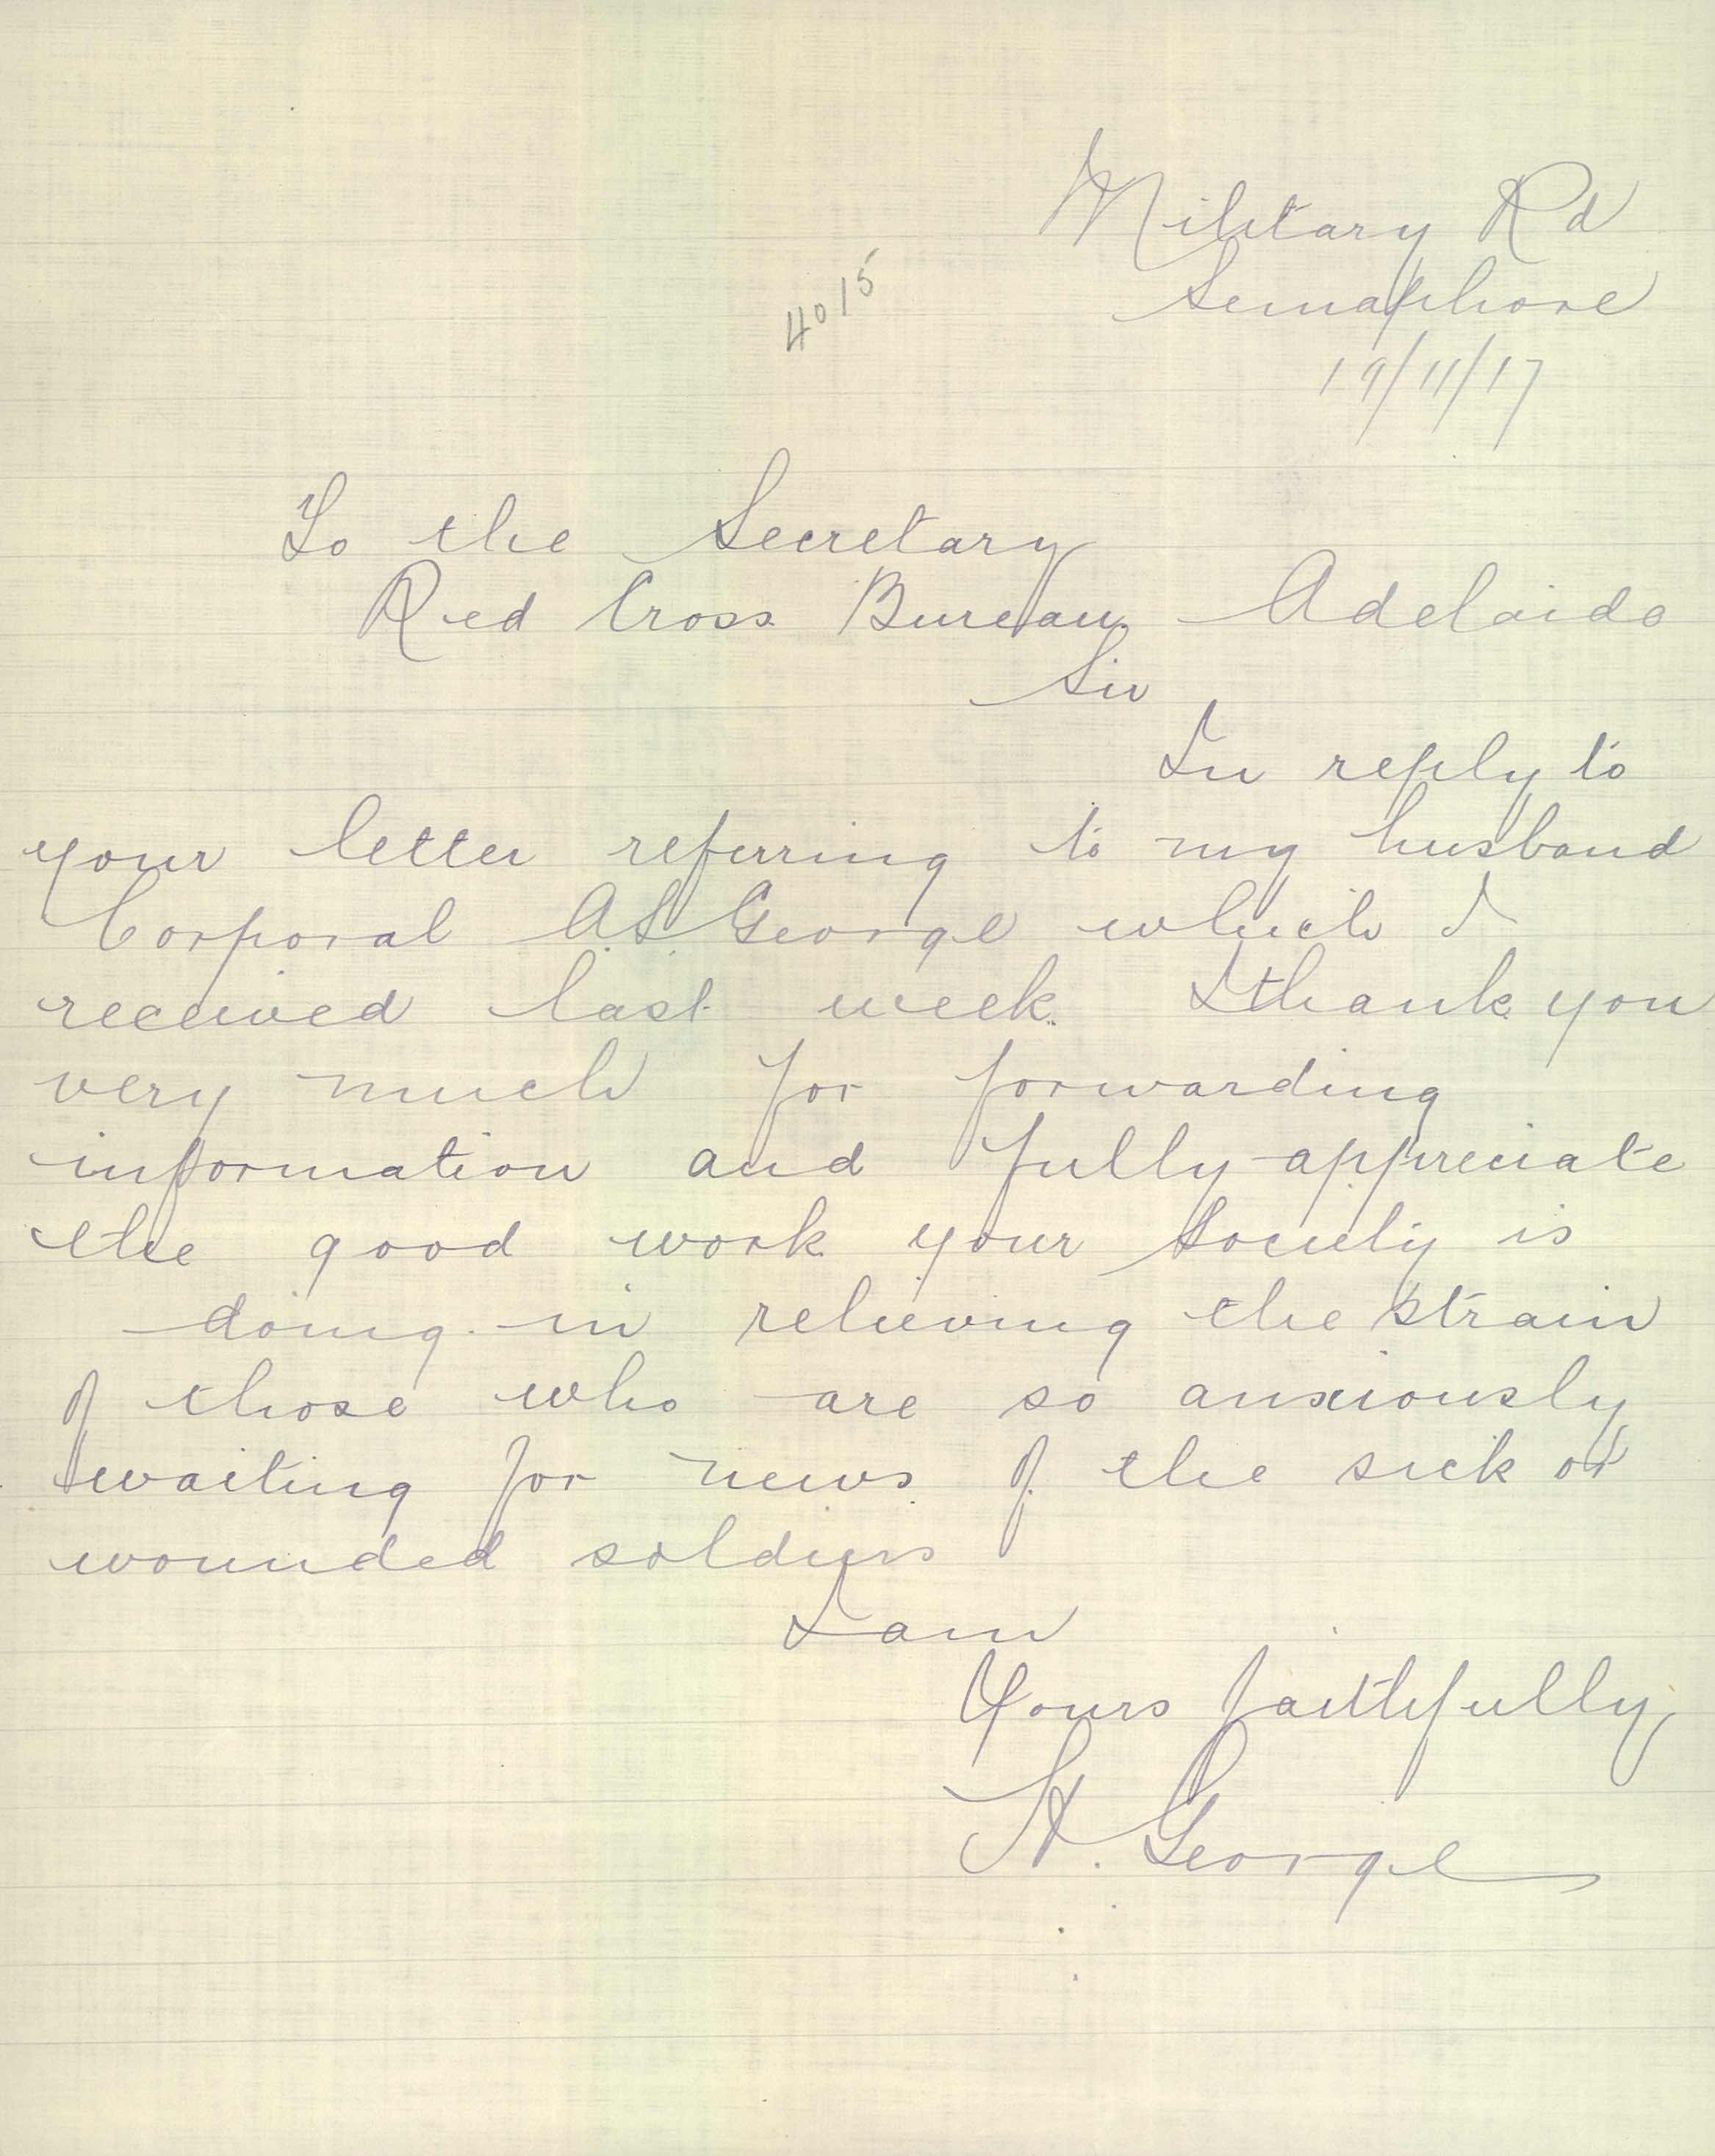 Military Rd
4015
Semaphore
19/11/17
To the Secretary
Red Cross Bureau Adelaide
Sir
In reply to
your letter referring to my husband
Corporal A.S. George which I
received last week. I thank you
very much for forwarding
information and fully appreciate
the good work your Society is
doing in relieving the strain
of those who are so anxiously
waiting for news of the sick or
wounded soldiers
I am
Yours faithfully,
H. George